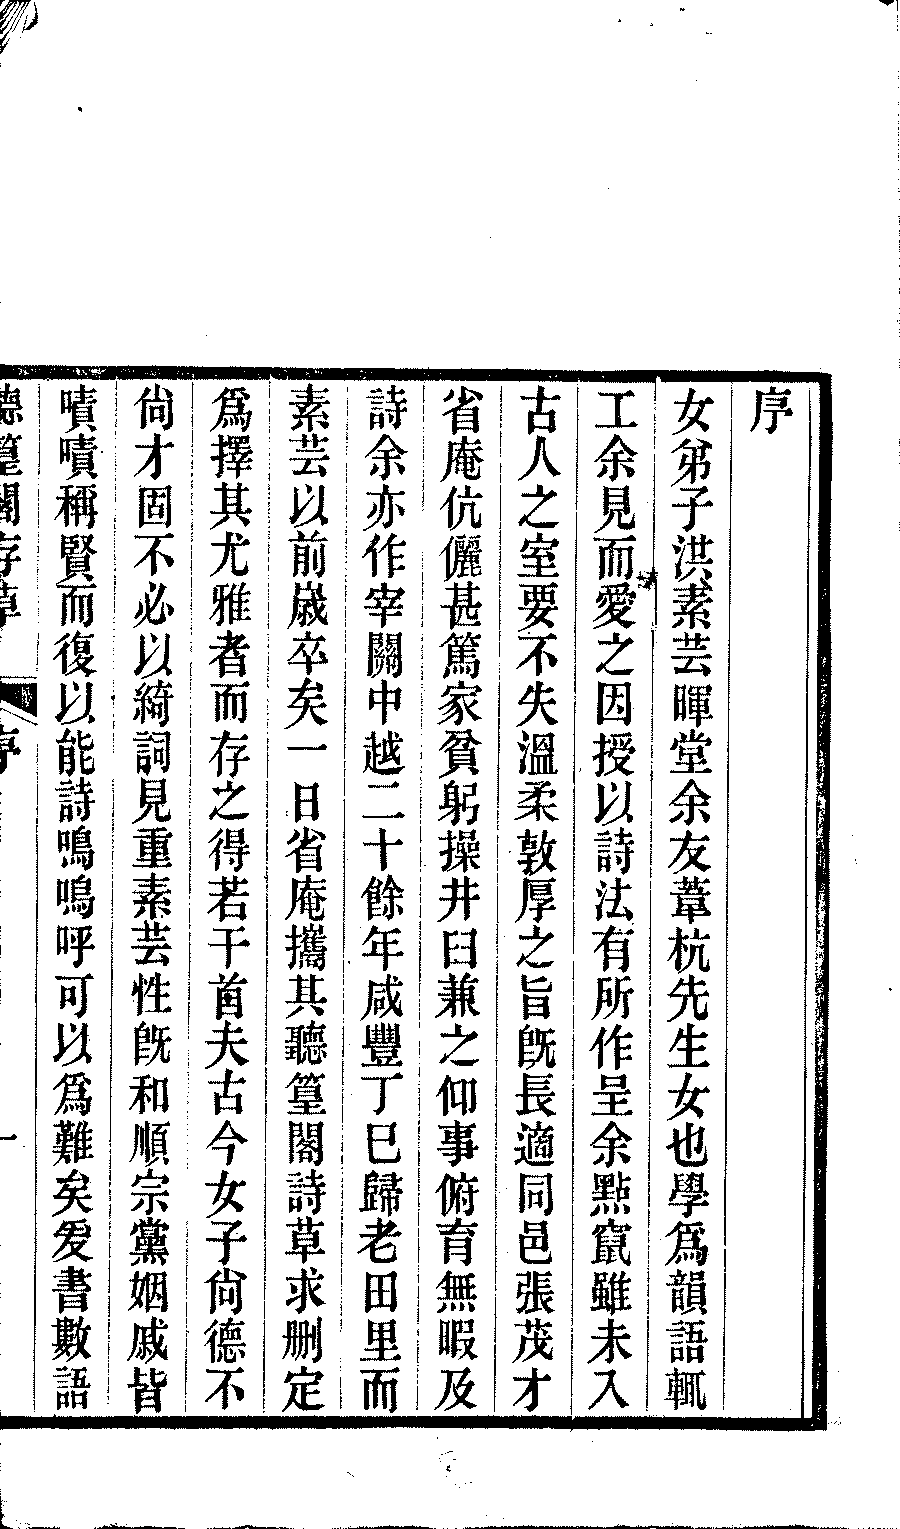 序
女弟子洪素芸暉堂余友葦杭先生女也學爲韻語輒
工余見而愛之因授以詩法有所作呈余點竄雖未入
古人之室要不失溫柔敦厚之旨旣長適同邑張茂才
省庵伉儷甚篤家貧躬操井臼兼之仰事俯育無暇及
詩余亦作宰關中越二十餘年咸豐丁巳歸老田里而
素芸以前歲卒矣一日省庵攜其聽篁閣詩草求删定
爲擇其尤雅者而存之得若干首夫古今女子尙德不
尙才固不必以綺詞見重素芸性旣和順宗黨姻戚皆
嘖嘖稱賢而復以能詩鳴嗚呼可以爲難矣爰書數語
聽篁閣存草 序 一